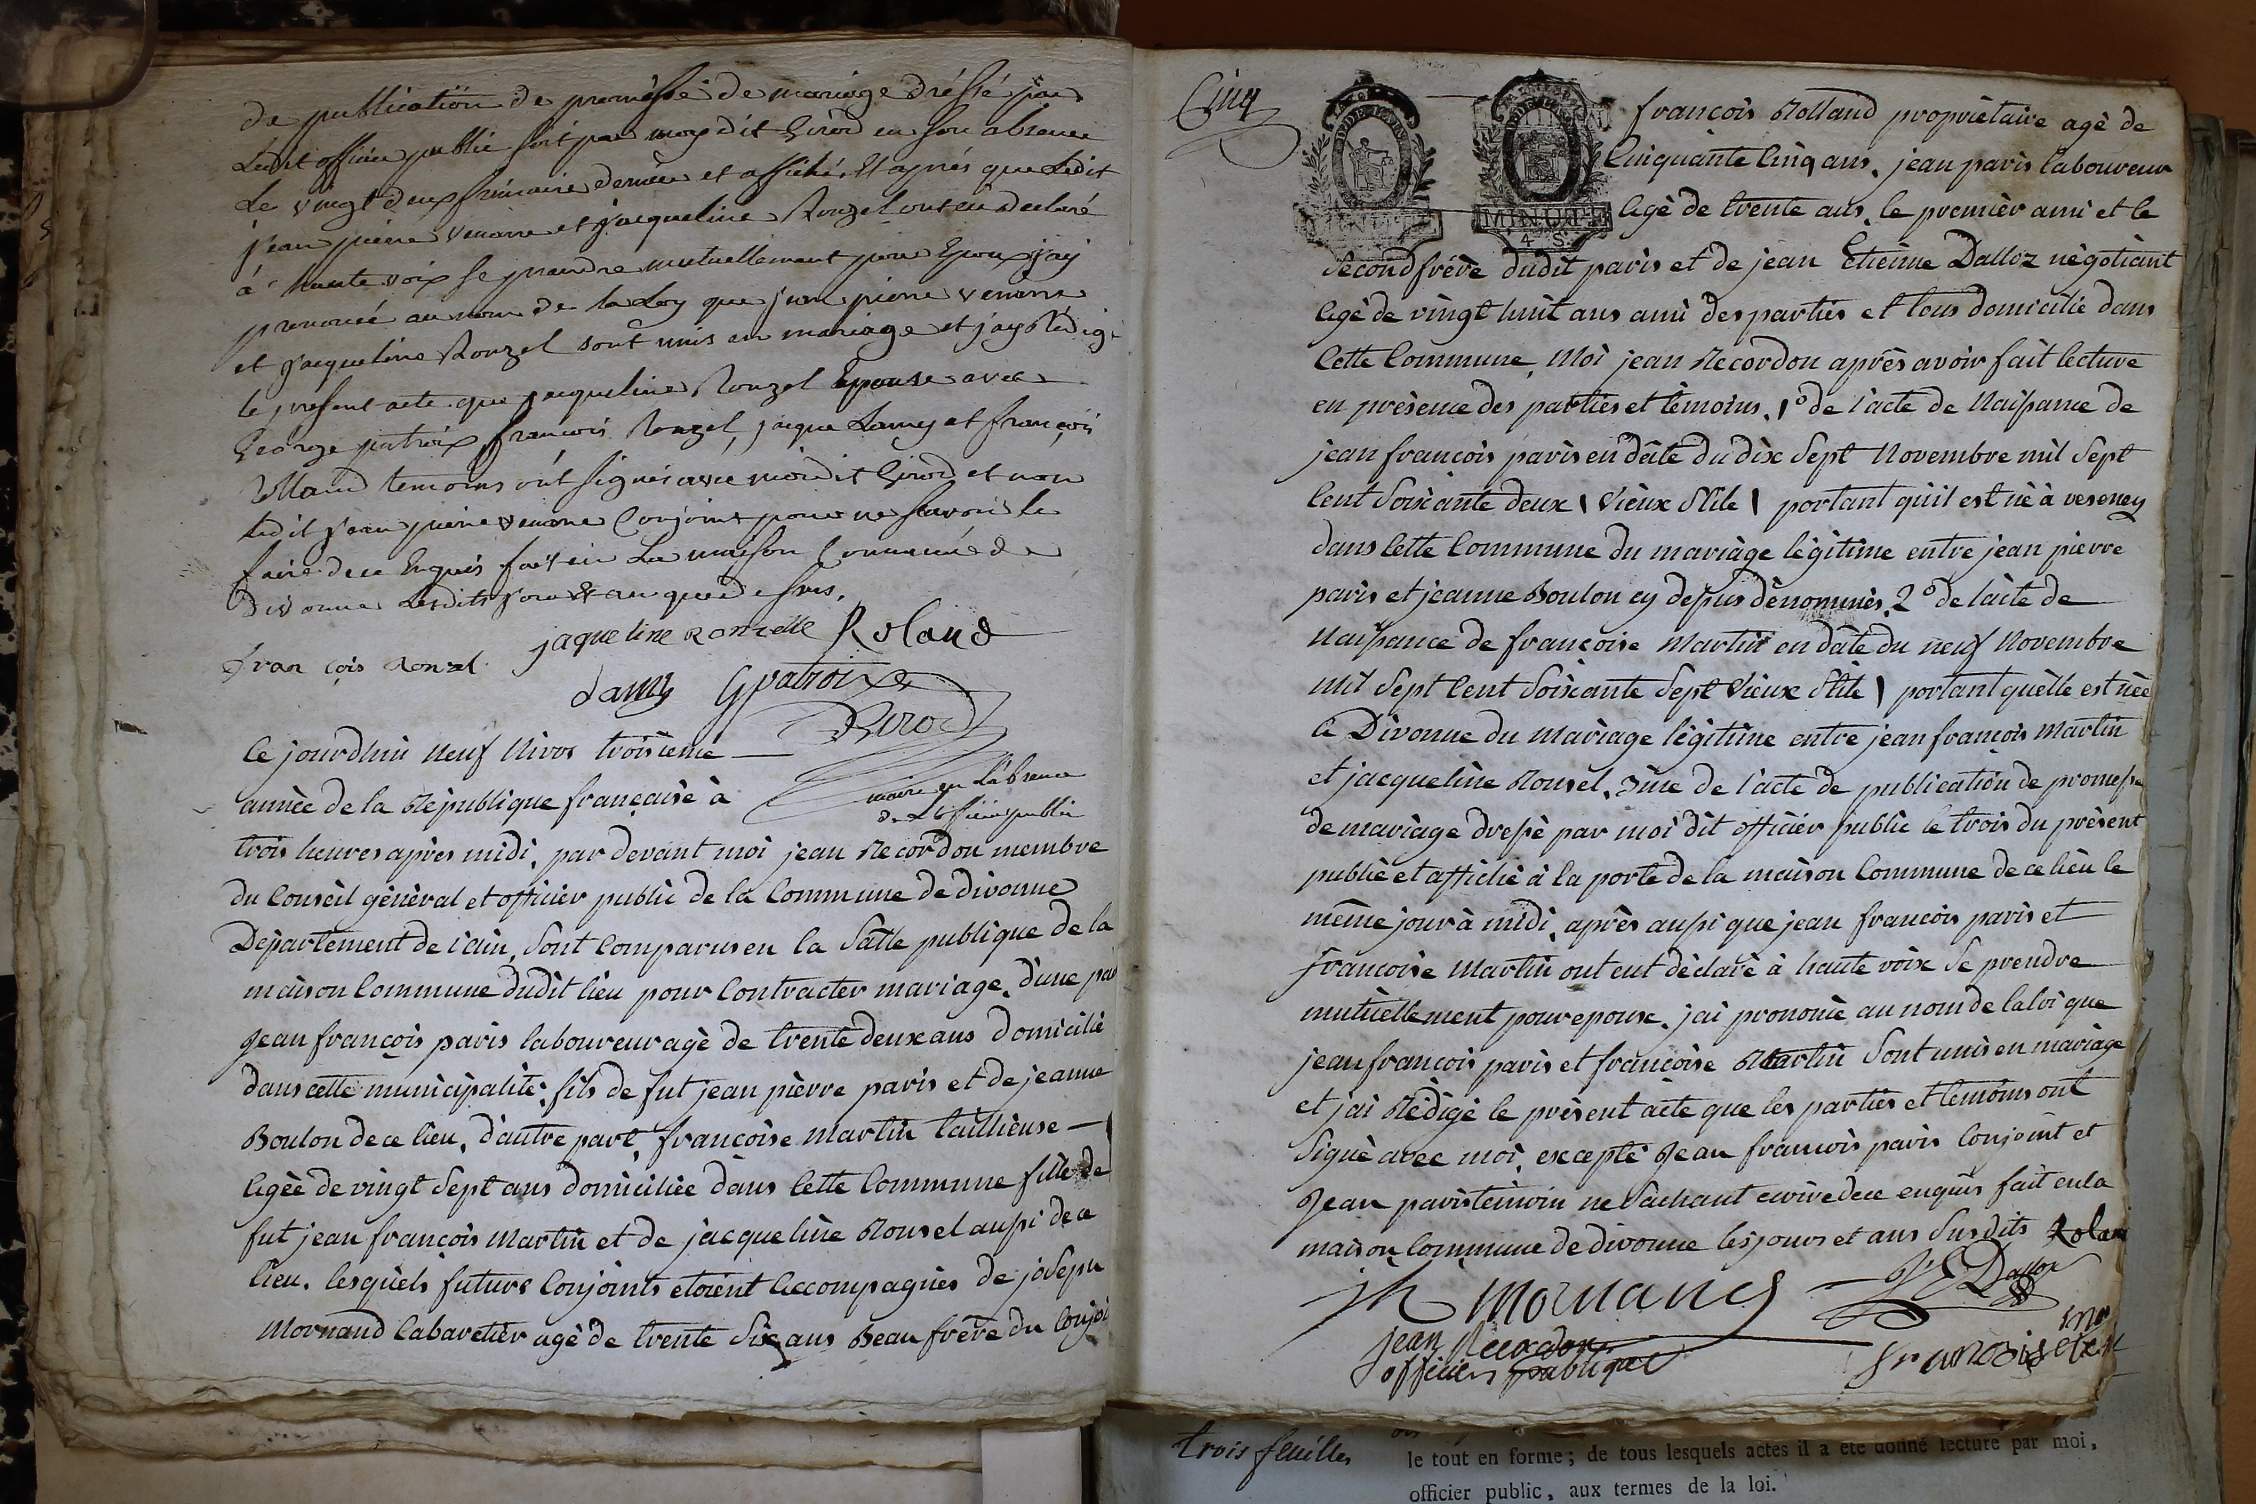 de publication de promesse de mariage dréssé par
Ledit officier public soit par moy dit Girod en son absence
Le vingt deux frimaire dernier et affiché, Et aprés que Ledit
jean pierre venarre et jacqueline Rouzel ont eu declaré
á haute voix se prendre mutuellement pour Epoux j'ay
prononcé au nom de la Loy que jean pierre venarre
et jacqueline Rouzel sont unis en mariage et j'ay Rédigé
le present acte que jacqueline Rouzel Epouse avec
George patroix, françois Rouzel, jacque Lamy et françois
Rolland temoins ont signés avec moi dit Girod et non
ledit jean pierre venarre Conjoint pour ne scavoir le
faire de ce Enquis fait en La maison Commune de
divonne Lesdits jour et an que dessus.
fran çois Ronzel jaqueline Ronzelle Roland
Lamy G patroix
Girod
maire en L'absence
de L'officier public
Ce jourdhui neuf Nivos troisieme
année de la République française à
trois heures après midi, par devant moi jean Recordon membre
du Conseil général et officier public de la Commune de divonne
Département de l'ain, sont comparus en la Salle publique de la
maison Commune dudit lieu pour Contracter mariage, d'une par
jean françois paris laboureur agè de trente deux ans domicilié
dans cette municipalité, fils de fut jean pièrre paris et de jeanne
Boulon de ce lieu, d'autre part, françoise Martin taillieuse
Agèe de vingt Sept ans domiciliée dans Cette Commune fille de
fut jean françois Martin et de jacqueline Rousel aussi de ce
lieu. lesquèls futurs Conjoints etoient Accompagnès de joseph
Mornand Cabaretièr agè de trente Six ans Beau frère du Conjoi
Cinq
françois Rolland propriètaire agè de
Cinquante Cinq ans, jean paris laboureur
Agè de trente ans, le premièr ami et le
MINUTE
4 S.
Second frére dudit paris et de jean Etiènne Dalloz nègotiant
Agè de vingt huit ans ami des parties et tous domicilié dans
Cette Commune, Moi jean Recordon après avoir fait lecture
en prèsence des parties et tèmoins, 1° de l'acte de Naissance de
jean françois paris en dâte du dix Sept Novembre mil Sept
Cent Soixante deux ( Vieux Stile ) portant qu'il est nè à veseney
dans Cette Commune du mariàge lègitime entre jean pierre
paris et jeanne Boulon cy dessus dènommès, 2° de l'acte de
Naissance de françoise Martin en dâte du neuf Novembre
mil Sept Cent Soixante Sept Vieux Stile ) portant quèlle est nèe
à Divonne du mariage lègitime entre jean françois Martin
et jacquelène Rousel, 3me de l'acte de publication de promesse
de mariage dressè par moi dit officièr public le trois du prèsent
publiè et affichè à la porte de la maison Commune de ce lieu le
même jour à midi, après aussi que jean françois paris et
françoise Martin ont eut dèclarè à haute voix Se prendre
mutuèllement pour epoux, jai prononcè au nom de la loi que
jean françois paris et françoise Martin Sont unis en mariàge
et jai Rèdigé le prèsent acte que les parties et temoins ont
Signè avec moi, exceptè Jean françois paris Conjoint et
Jean paris temoin ne Sachant ecrire de ce enquis fait en la
maison Commune de divonne les jours et ans Susdits Rolan
jh Mornand J E Dalloz
jean Recordon
officier publique
françoise
trois feuilles
le tout en forme; de tous lesquels actes il a été donné lecture par moi,
officier public, aux termes de la loi.